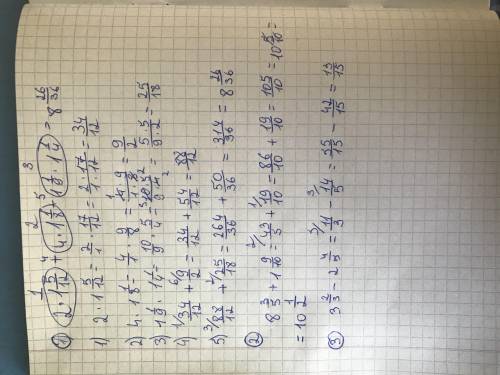 1 4 2 5 3
① 2·1 5/12 + 4·1 1/8 + 1 1/9·1 1/4 = 8 26/36
1) 2·1 5/12 = 2/1·17/12 = 2·17/1·12 = 34/12
2) 4·1 1/8 = 4/1·9/8 = 4·9/1·8 = 9/2
3) 1 1/9·1 1/4 = 10/9·5/4 = 10·5/9·4 = 5·5/9·2 = 25/18
4) 34/12 + 9/2 = 34/12 + 54/12 = 88/12
5) 88/12 + 25/18 = 264/36 + 50/36 = 314/36 = 8 26/36
② 8 3/5 + 1 9/10 = 43/5 + 19/10 = 86/10 + 19/10 = 105/10 = 10 5/10 =
= 10 1/2
③ 3 2/3 - 2 4/5 = 11/3 - 14/5 = 55/15 - 42/15 = 13/15